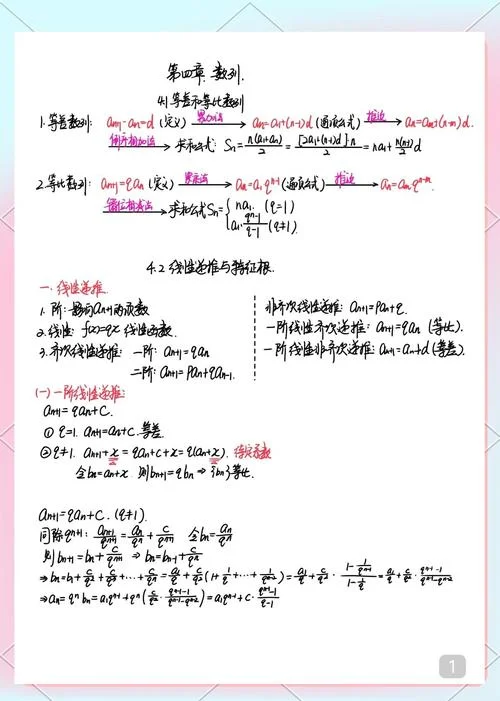 第四章 数列.
4.1 等差和等比数列
1. 等差数列: an+1-an=d (定义) 累加法→ an=a1+(n-1)d (通项公式) 推论→ an=am+(n-m)d.
倒序相加法→ 求和公式: Sn=n(a1+an)/2=[2a1+(n-1)d]·n/2=na1+n(n-1)/2 d
2. 等比数列: an+1=qan (定义) 累乘法→ an=a1q^n-1 (通项公式) 推论→ an=am q^n-m.
错位相减法→ 求和公式Sn={na1. (q=1)
a1·q^n-1/q-1 (q≠1).
4.2 线性递推与特征根.
一. 线性递推.
1. 阶: an+1的
2. 线性: f(x)=qx 线性函数.
3. 齐次线性递推: 一阶: an+1=qan
二阶: an+1=Pan+qan-1.
非齐次线性递推: an+1=Pan+q.
一阶线性齐次递推: an+1=qan (等比).
一阶线性非齐次递推: an+1=an+d (等差).
(一) 一阶线性递推:
an+1=qan+C.
① q=1. an+1=an+c. 等差.
② q≠1. an+1+x=qan+c+x=q(an+x). 待定系数
令bn=an+x 则bn+1=qbn ⇒ {bn}等比.
an+1=qan+C. (q≠1).
同除q^n+1: an+1/q^n+1=an/q^n+c/q^n+1 令bn=an/q^n
则bn+1=bn+c/q^n+1 ⇒ bn=bn-1+c/q^n
⇒bn=b1+c/q²+c/q³+…+c/q^n=a1/q+c/q²(1+1/q+…+1/q^n-2)=a1/q+c/q²·(1-1/q^n-1)/(1-1/q)=a1/q+c/q²·(q^n-1-1)/(q^n-1-q^n-2)
⇒an=q^n bn=a1q^n-1+q^n(c/q²·(q^n-1-1)/(q^n-1-q^n-2))=a1q^n-1+c·(q^n-1-1)/(q-1)
1